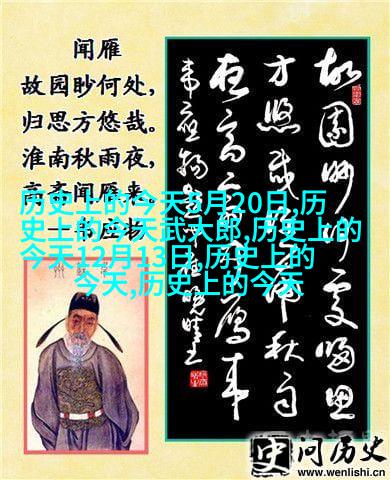 闻雁
故园眇何处,
归思方悠哉。
淮南秋雨夜,
高斋闻雁来。
韦应物
历史上的今天5月20日,历
史上的今天武大郎,历史上的
今天12月13日,历史上的
今天,历史上的今天
故園眇何處歸思
方悠哉淮南秋雨
夜高斋闻雁来
韦应物
史问历史
www.wenlishi.cn